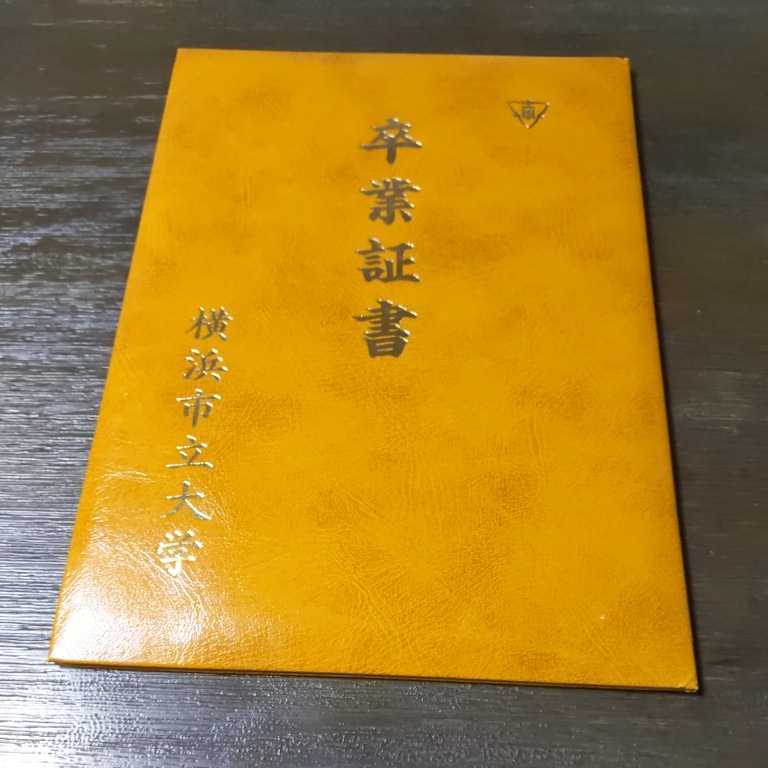 卒業証書
横浜市立大学